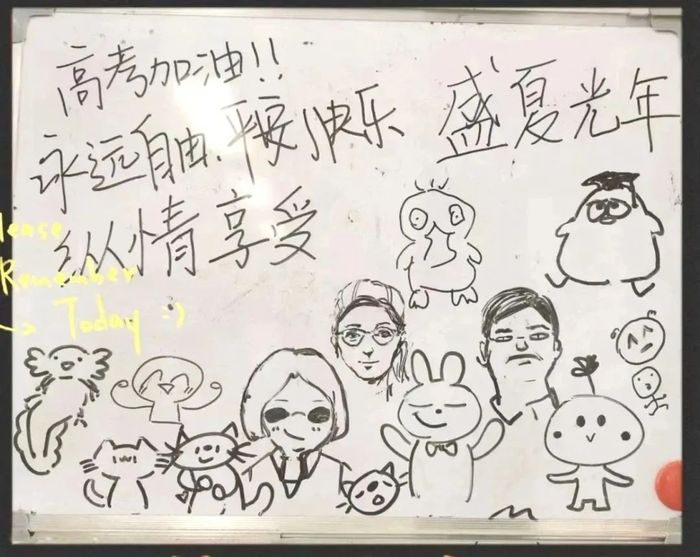 高考加油!!
永远自由、平安快乐
盛夏光年
纵情享受
lease
Remember
→ Today :)